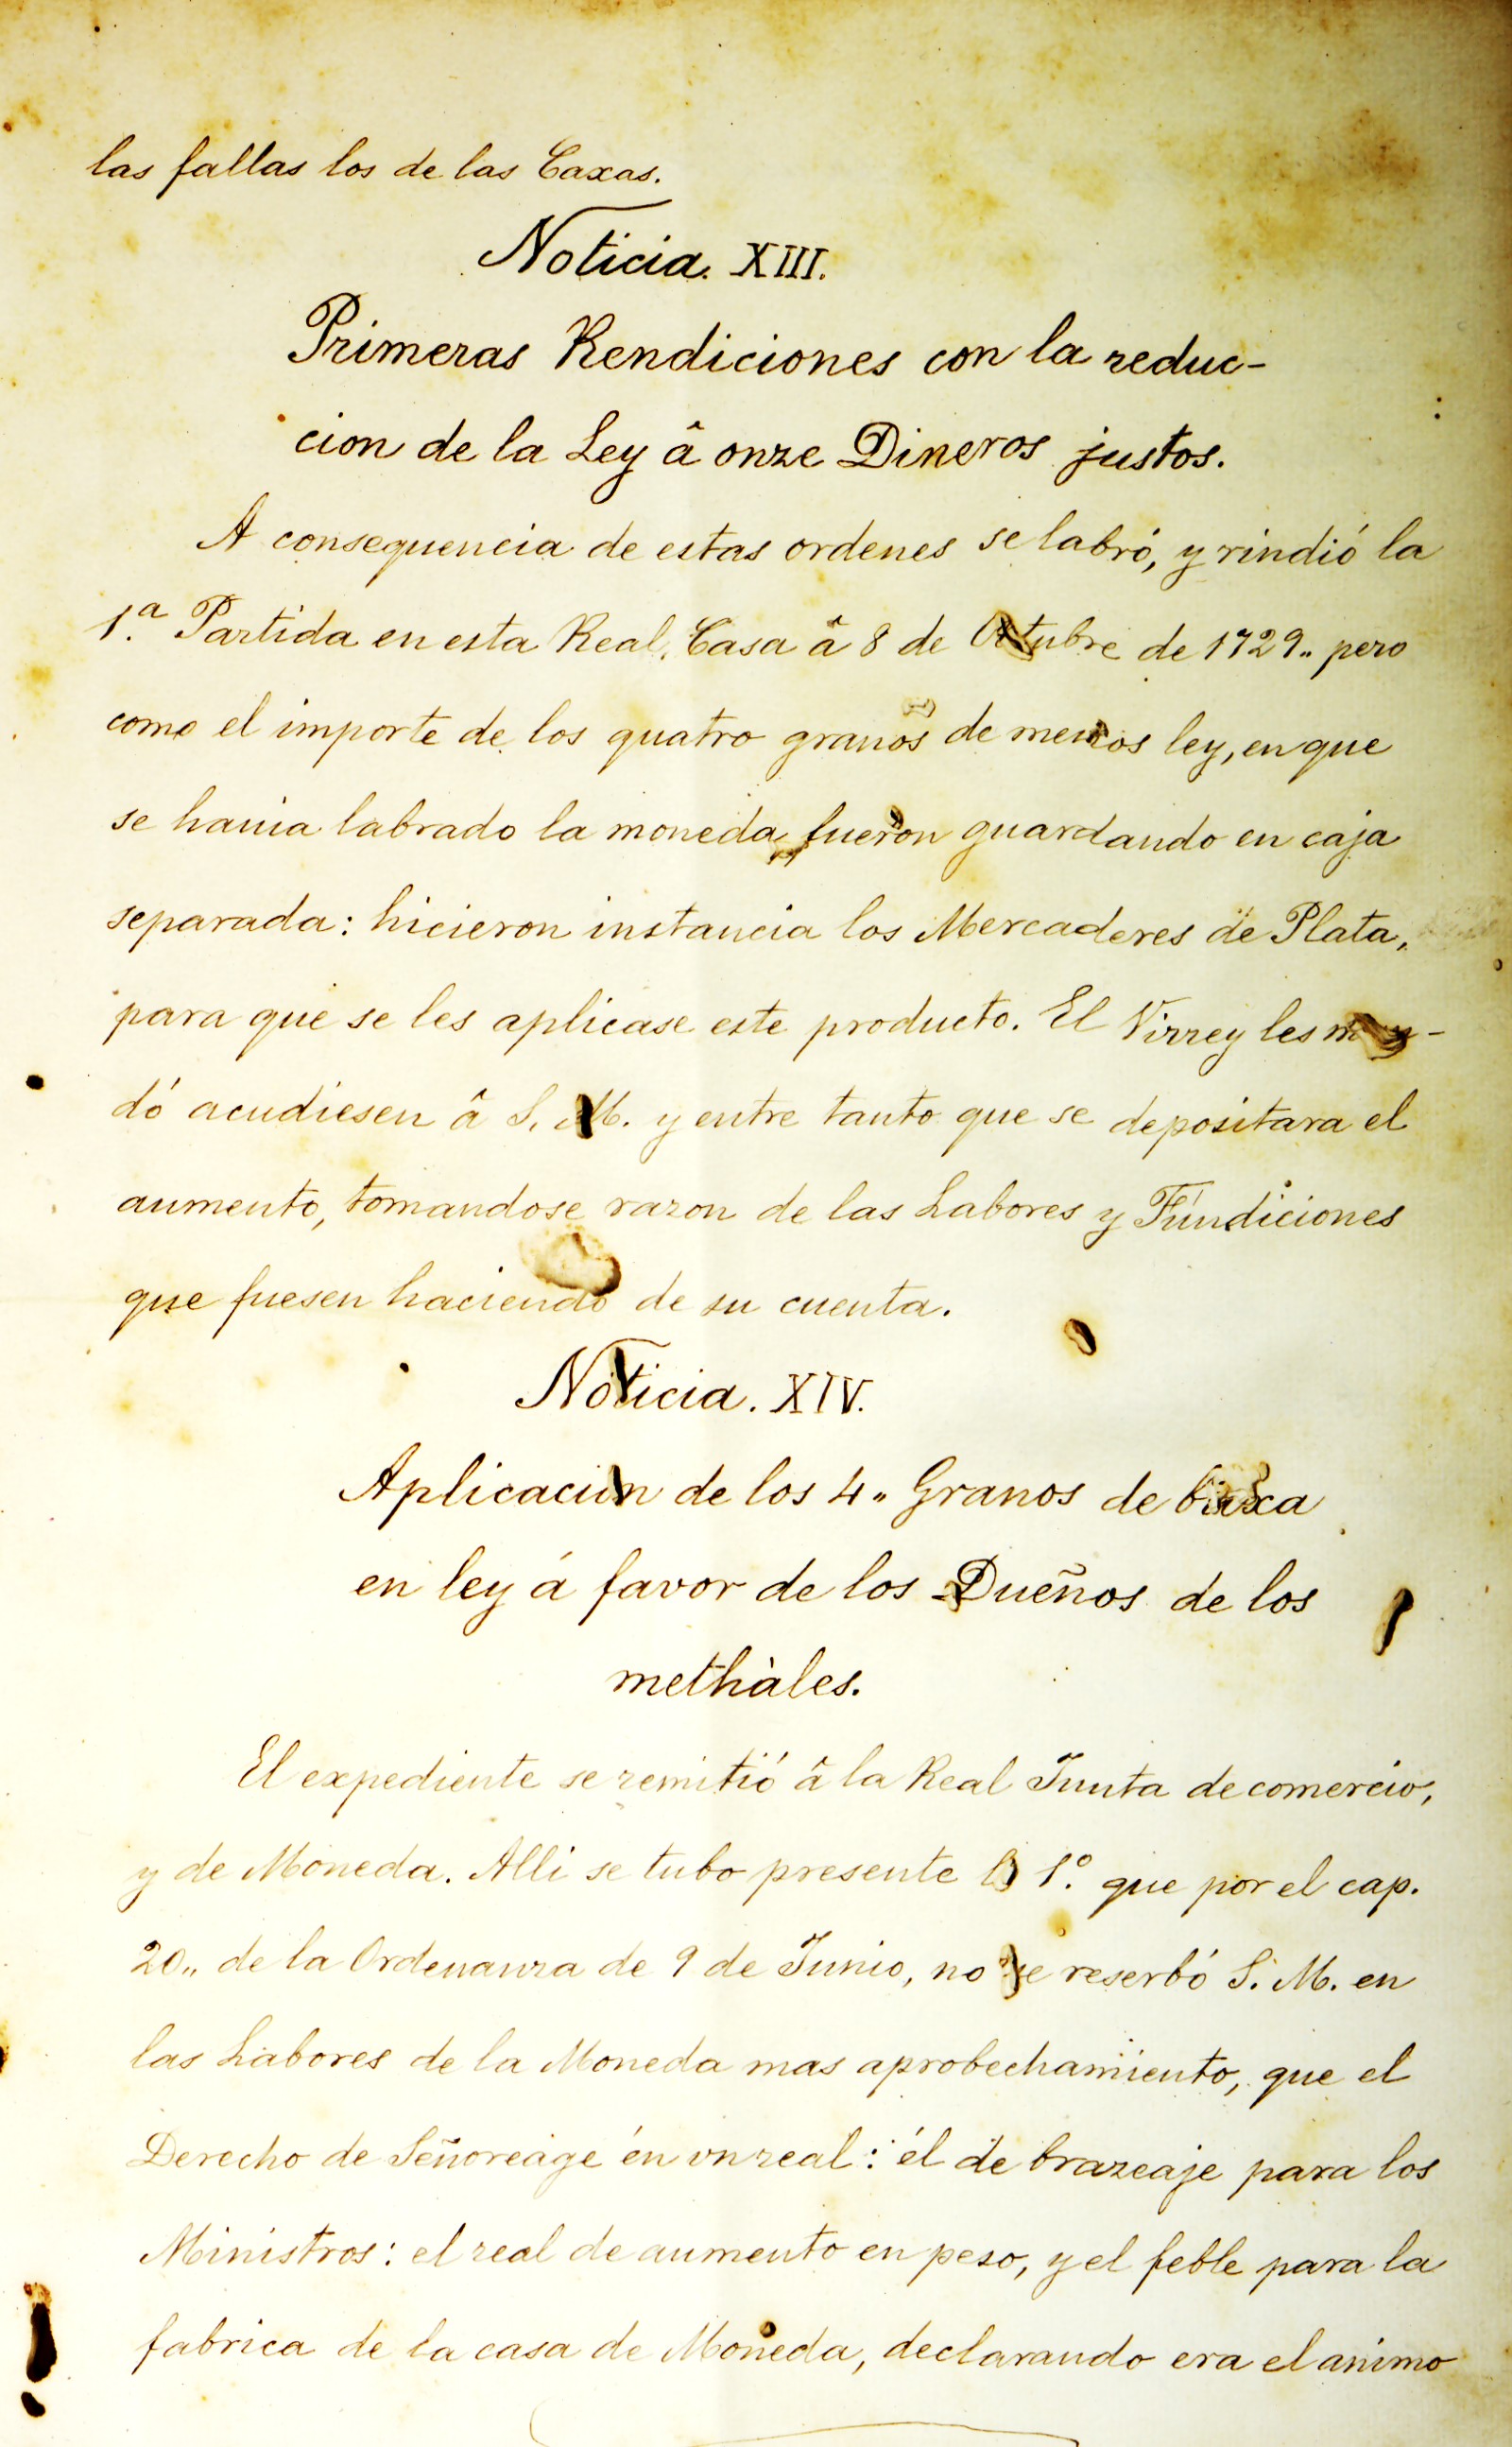 las fallas los de las Caxas.
Noticia. XIII.
Primeras Rendiciones con la reduc-
cion de la Ley â onze Dineros justos.
A consequencia de estas ordenes se labró, y rindió la
1.ª Partida en esta Real Casa â 8 de Octubre de 1729.. pero
como el importe de los quatro granos de menos ley, en que
se havia labrado la moneda, fueron guardando en caja
separada: hicieron instancia los Mercaderes de Plata,
para que se les aplicase este producto. El Virrey les man-
dó acudiesen â S. M. y entre tanto que se depositara el
aumento, tomandose razon de las Labores y Fundiciones
que fuesen haciendo de su cuenta.
Noticia. XIV.
Aplicacion de los 4.. Granos de baxa
en ley á favor de los Dueños de los
methàles.
El expediente se remitió â la Real Junta de comercio,
y de Moneda. Alli se tubo presente lo 1.º que por el cap.
20.. de la Ordenanza de 9 de Junio, no se reserbó S. M. en
las Labores de la Moneda mas aprobechamiento, que el
Derecho de Señoreage en vn real: él de brazeaje para los
Ministros: el real de aumento en peso, y el feble para la
fabrica de la casa de Moneda, declarando era el animo